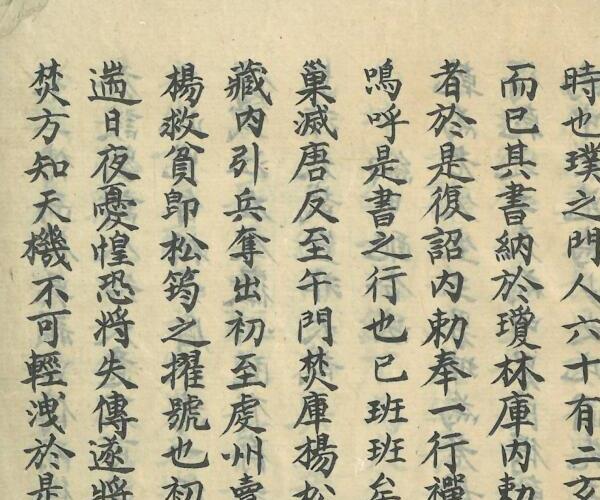 時也璞之門人六十有二玄
而已其書納於瓊林庫內勅
者於是復詔內勅奉一行禪
嗚呼是書之行也已班班矣
巢滅唐反至午門焚庫楊松
藏內引兵奪出初至虔州賣
楊救貧即松筠之擢號也初
遄日夜憂惶恐將失傳遂將
焚方知天機不可輕洩於是